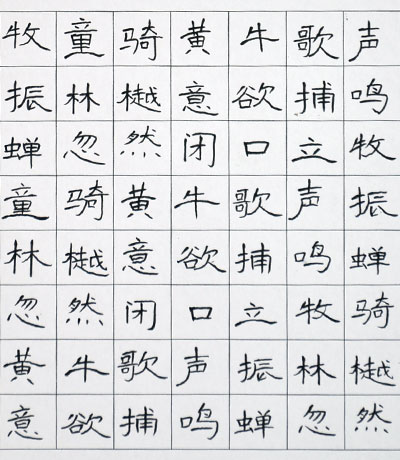 牧童骑黄牛歌声
振林樾意欲捕鸣
蝉忽然闭口立牧
童骑黄牛歌声振
林樾意欲捕鸣蝉
忽然闭口立牧骑
黄牛歌声振林樾
意欲捕鸣蝉忽然